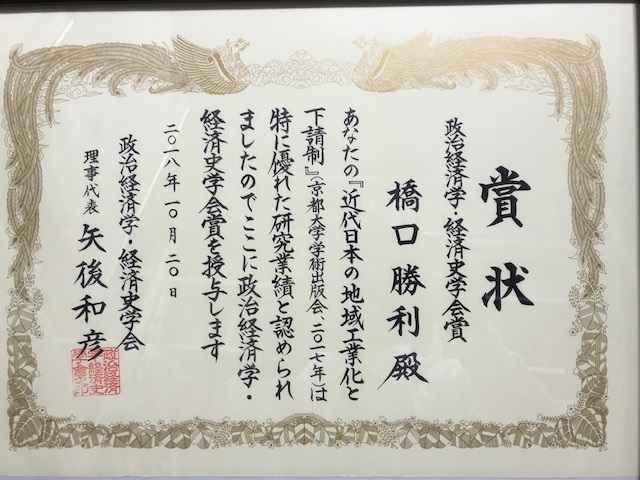 賞状
政治経済学・経済史学会賞
橋口勝利殿
あなたの『近代日本の地域工業化と
下請制』(京都大学学術出版会、二〇一七年)は
特に優れた研究業績と認められ
ましたのでここに政治経済学・
経済史学会賞を授与します
二〇一八年一〇月二〇日
政治経済学・経済史学会
理事代表 矢後和彦
政治経済
学・経済史
学会之印